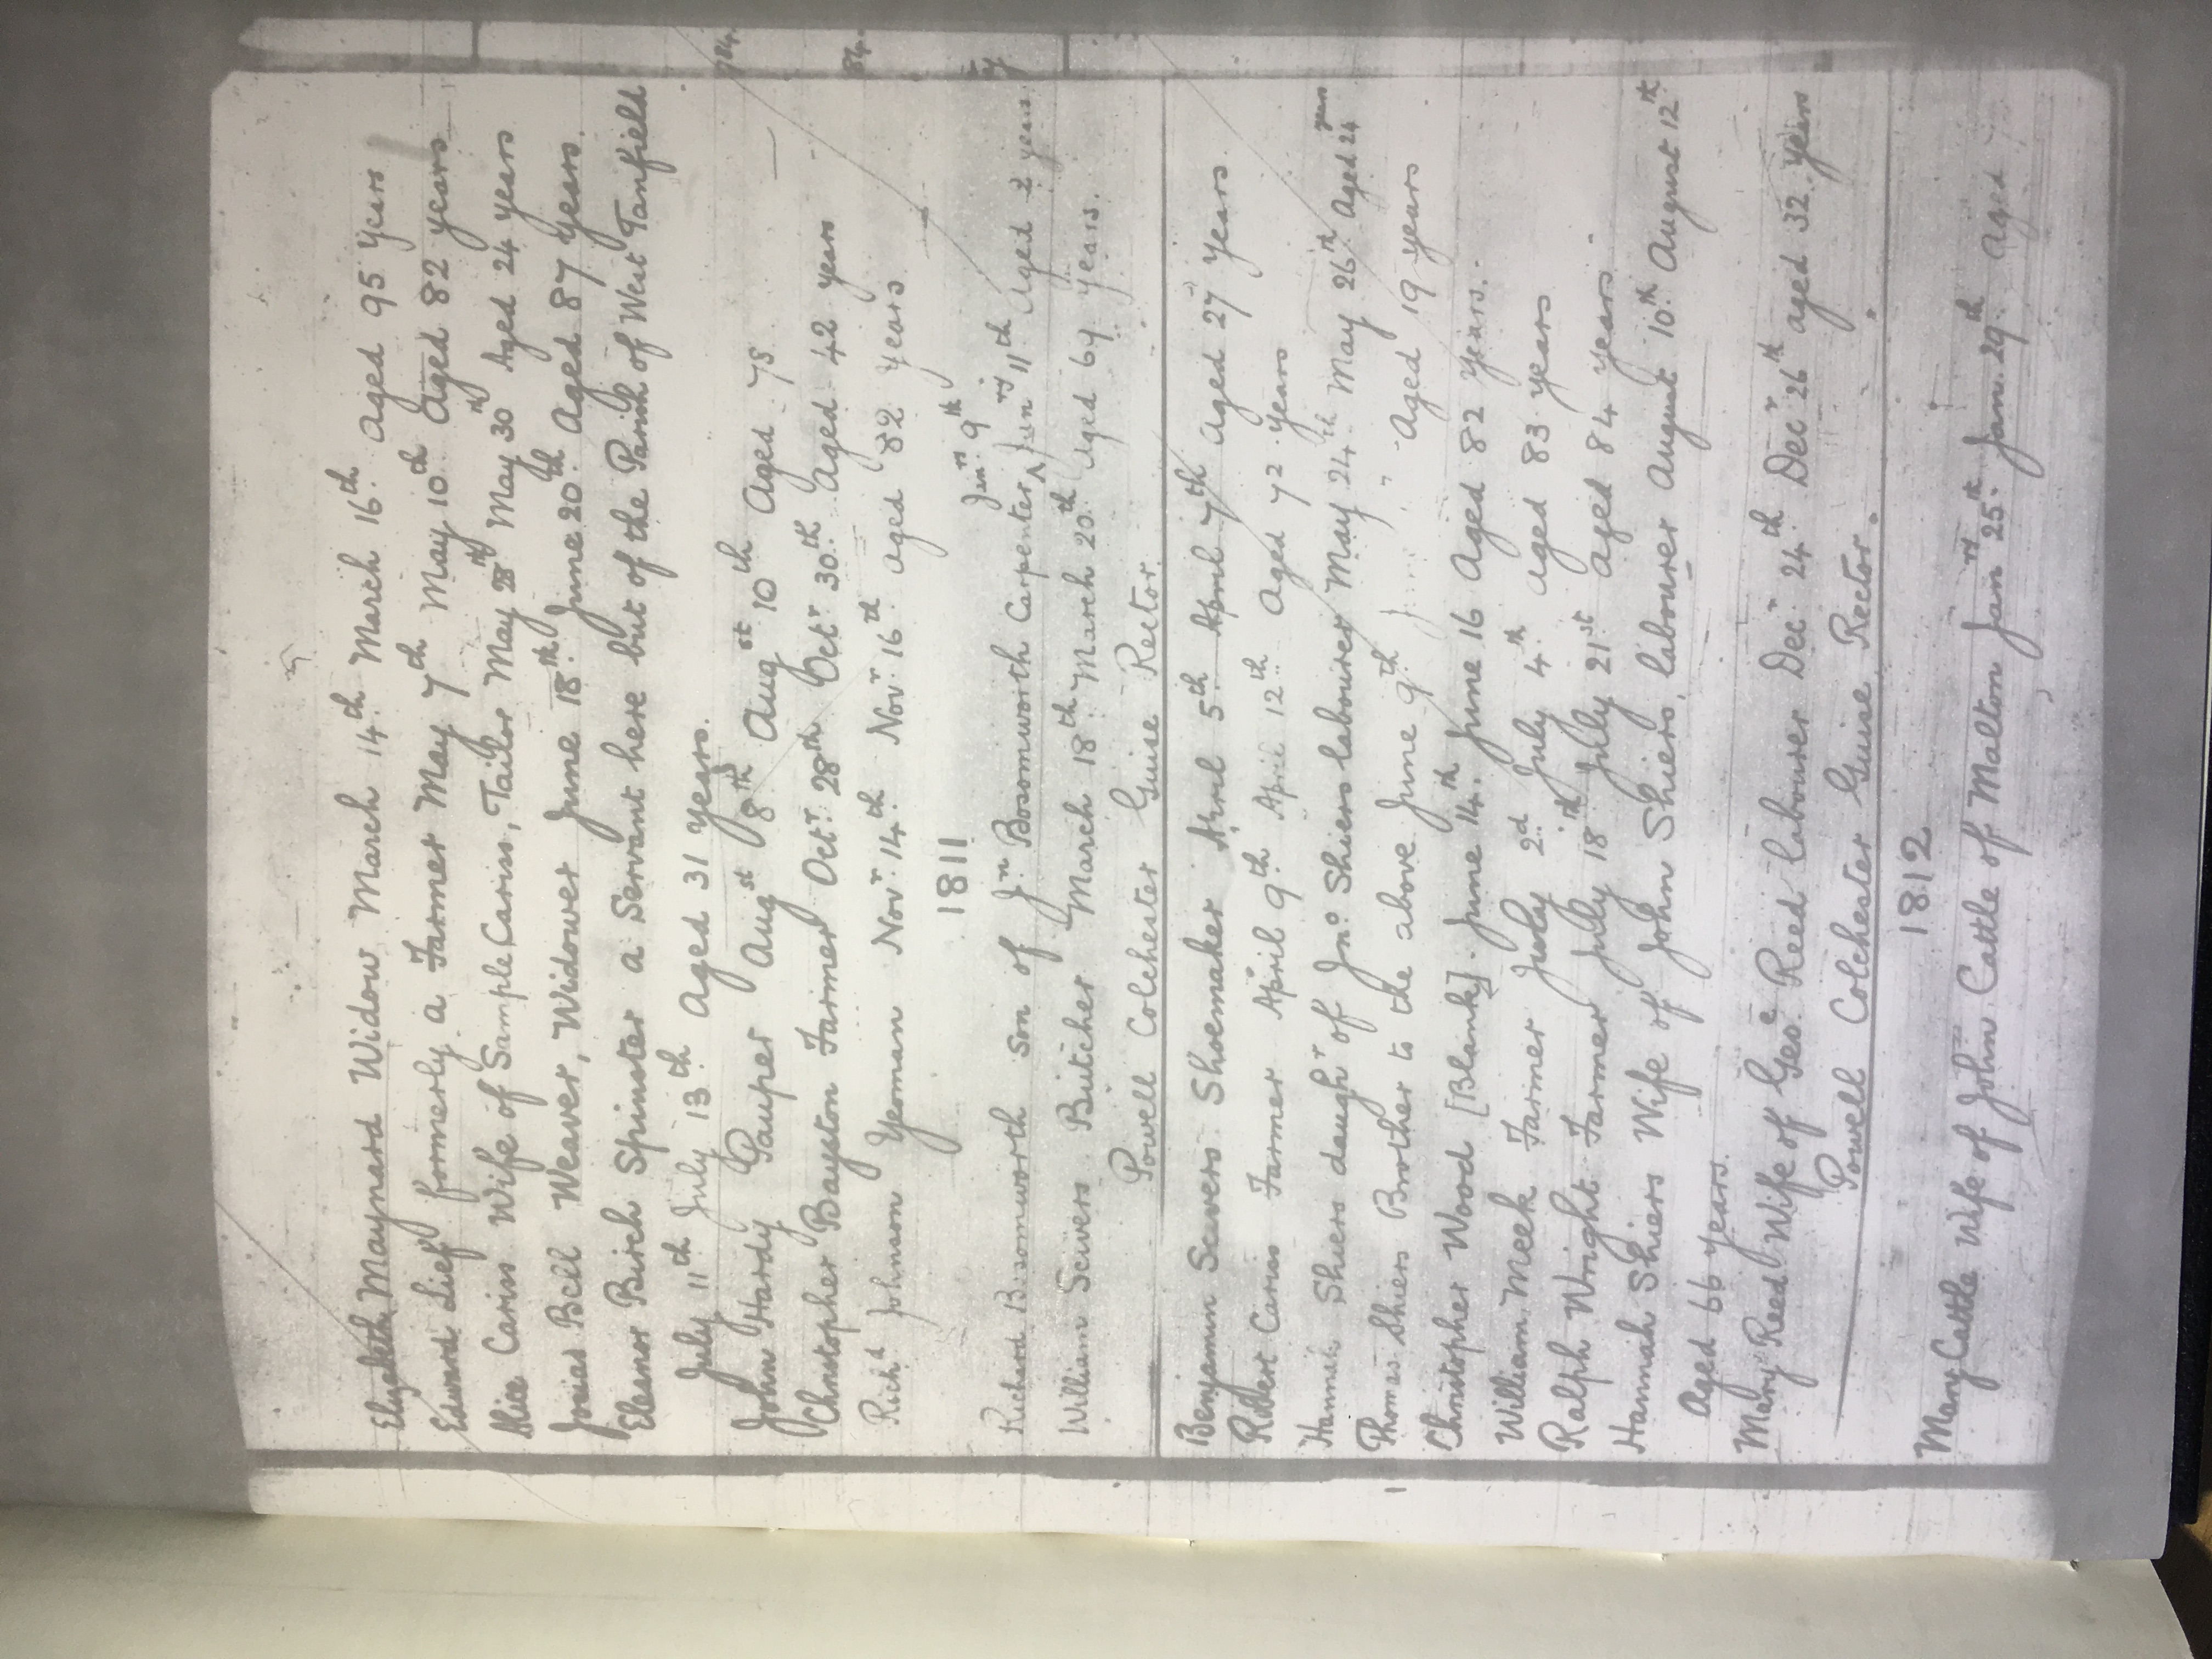 Elizabeth Maynard Widow March 14th March 16th Aged 95 Years
Edward Lief formerly a Farmer May 7th May 10th Aged 82 years
Alice Cariss Wife of Sample Cariss, Tailor May 28th May 30th Aged 24 years
Josiad Bell Weaver, Widower June 18th June 20th Aged 87 years.
Eleanor Birch Spinster a Servant here but of the Parish of West Tanfield
July 11th July 13th Aged 31 years.
John Hardy Pauper Augst 8th Augst 10th Aged 78
Christopher Bayston Farmer Octr 28th Octr 30th Aged 42 years
Richd Johnson Yeoman Novr 14th Novr 16th aged 82 years
1811
Janry 9th
Richard Bosomworth son of Jn Bosomworth Carpenter ^ Janry 11th Aged 2 years
William Seivers Butcher March 18th March 20th Aged 69 years.
Powell Colchester Guise Rector.
Benjamin Seivers Shoemaker April 5th April 7th aged 27 years
Robert Cariss Farmer April 9th April 12th Aged 72 years
Hannah Shiers daughr of Jno Shiers labourer May 24th May 26th Aged 24 years
Thomas Shiers Brother to the above June 9th Aged 19 years
Christopher Wood [Blank]. June 14th June 16 Aged 82 years.
William Meek Farmer July 2d July 4th aged 83 years
Ralph Wright Farmer July 18th July 21st aged 84 years
Hannah Shiers Wife of John Shiers, labourer August 10th August 12th
Aged 66 years.
Mary Reed Wife of Geoe Reed labourer Decr 24th Decr 26th aged 32 years
Powell Colchester Guise Rector.
1812
Mary Cattle Wife of John Cattle of Malton Janry 25th Jan. 29th aged